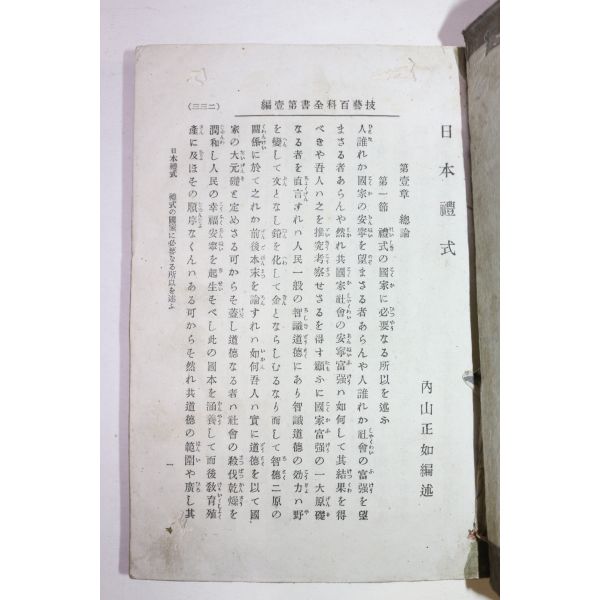 技藝百科全書第壹編
(二三三)
日本禮式
內山正如編述
第壹章 總論
第一節 禮式の國家に必要なる所以を述ふ
人誰れか國家の安寧を望まさる者あらんや人誰れか社會の富强を望
まさる者あらんや然れ共國家社會の安寧富强ハ如何して其結果を得
べきや吾人ハ之を推究考察せさるを得す顧ふに國家富强の一大原礎
なる者を直言すれハ人民一般の智識道德にあり智識道德の効力ハ野
を變して文となし鉛を化して金とならしむるなり而して智德二原の
關係に於て之れか前後本末を論すれハ如何吾人ハ實に道德を以て國
家の大元礎と定めさる可からそ蓋し道德なる者ハ社會の殺伐乾燥を
潤和し人民の幸福安寧を起生そべし此の國本を涵養して而後敎育殖
產に及ほその順序なくんハある可からそ然れ共道德の範圍や廣し其
日本禮式 禮式の國家に必要なる所以を述ふ
一